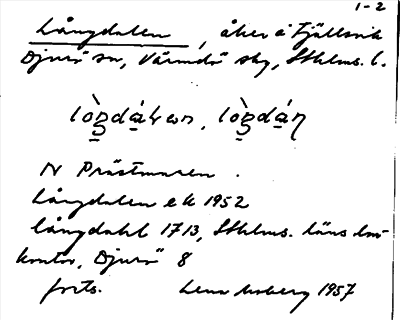 1-2
Långdalen, åker å Fjällsvik
Djurö sn, Värmdö skg, Sthlms. l.
lòŋdálən, lòŋdáṇ
N Prästmaren.
Långdalen ek 1952
långdahl 1713, Sthlms. läns lm-
kontor, Djurö 8
forts. Lena Moberg 1957